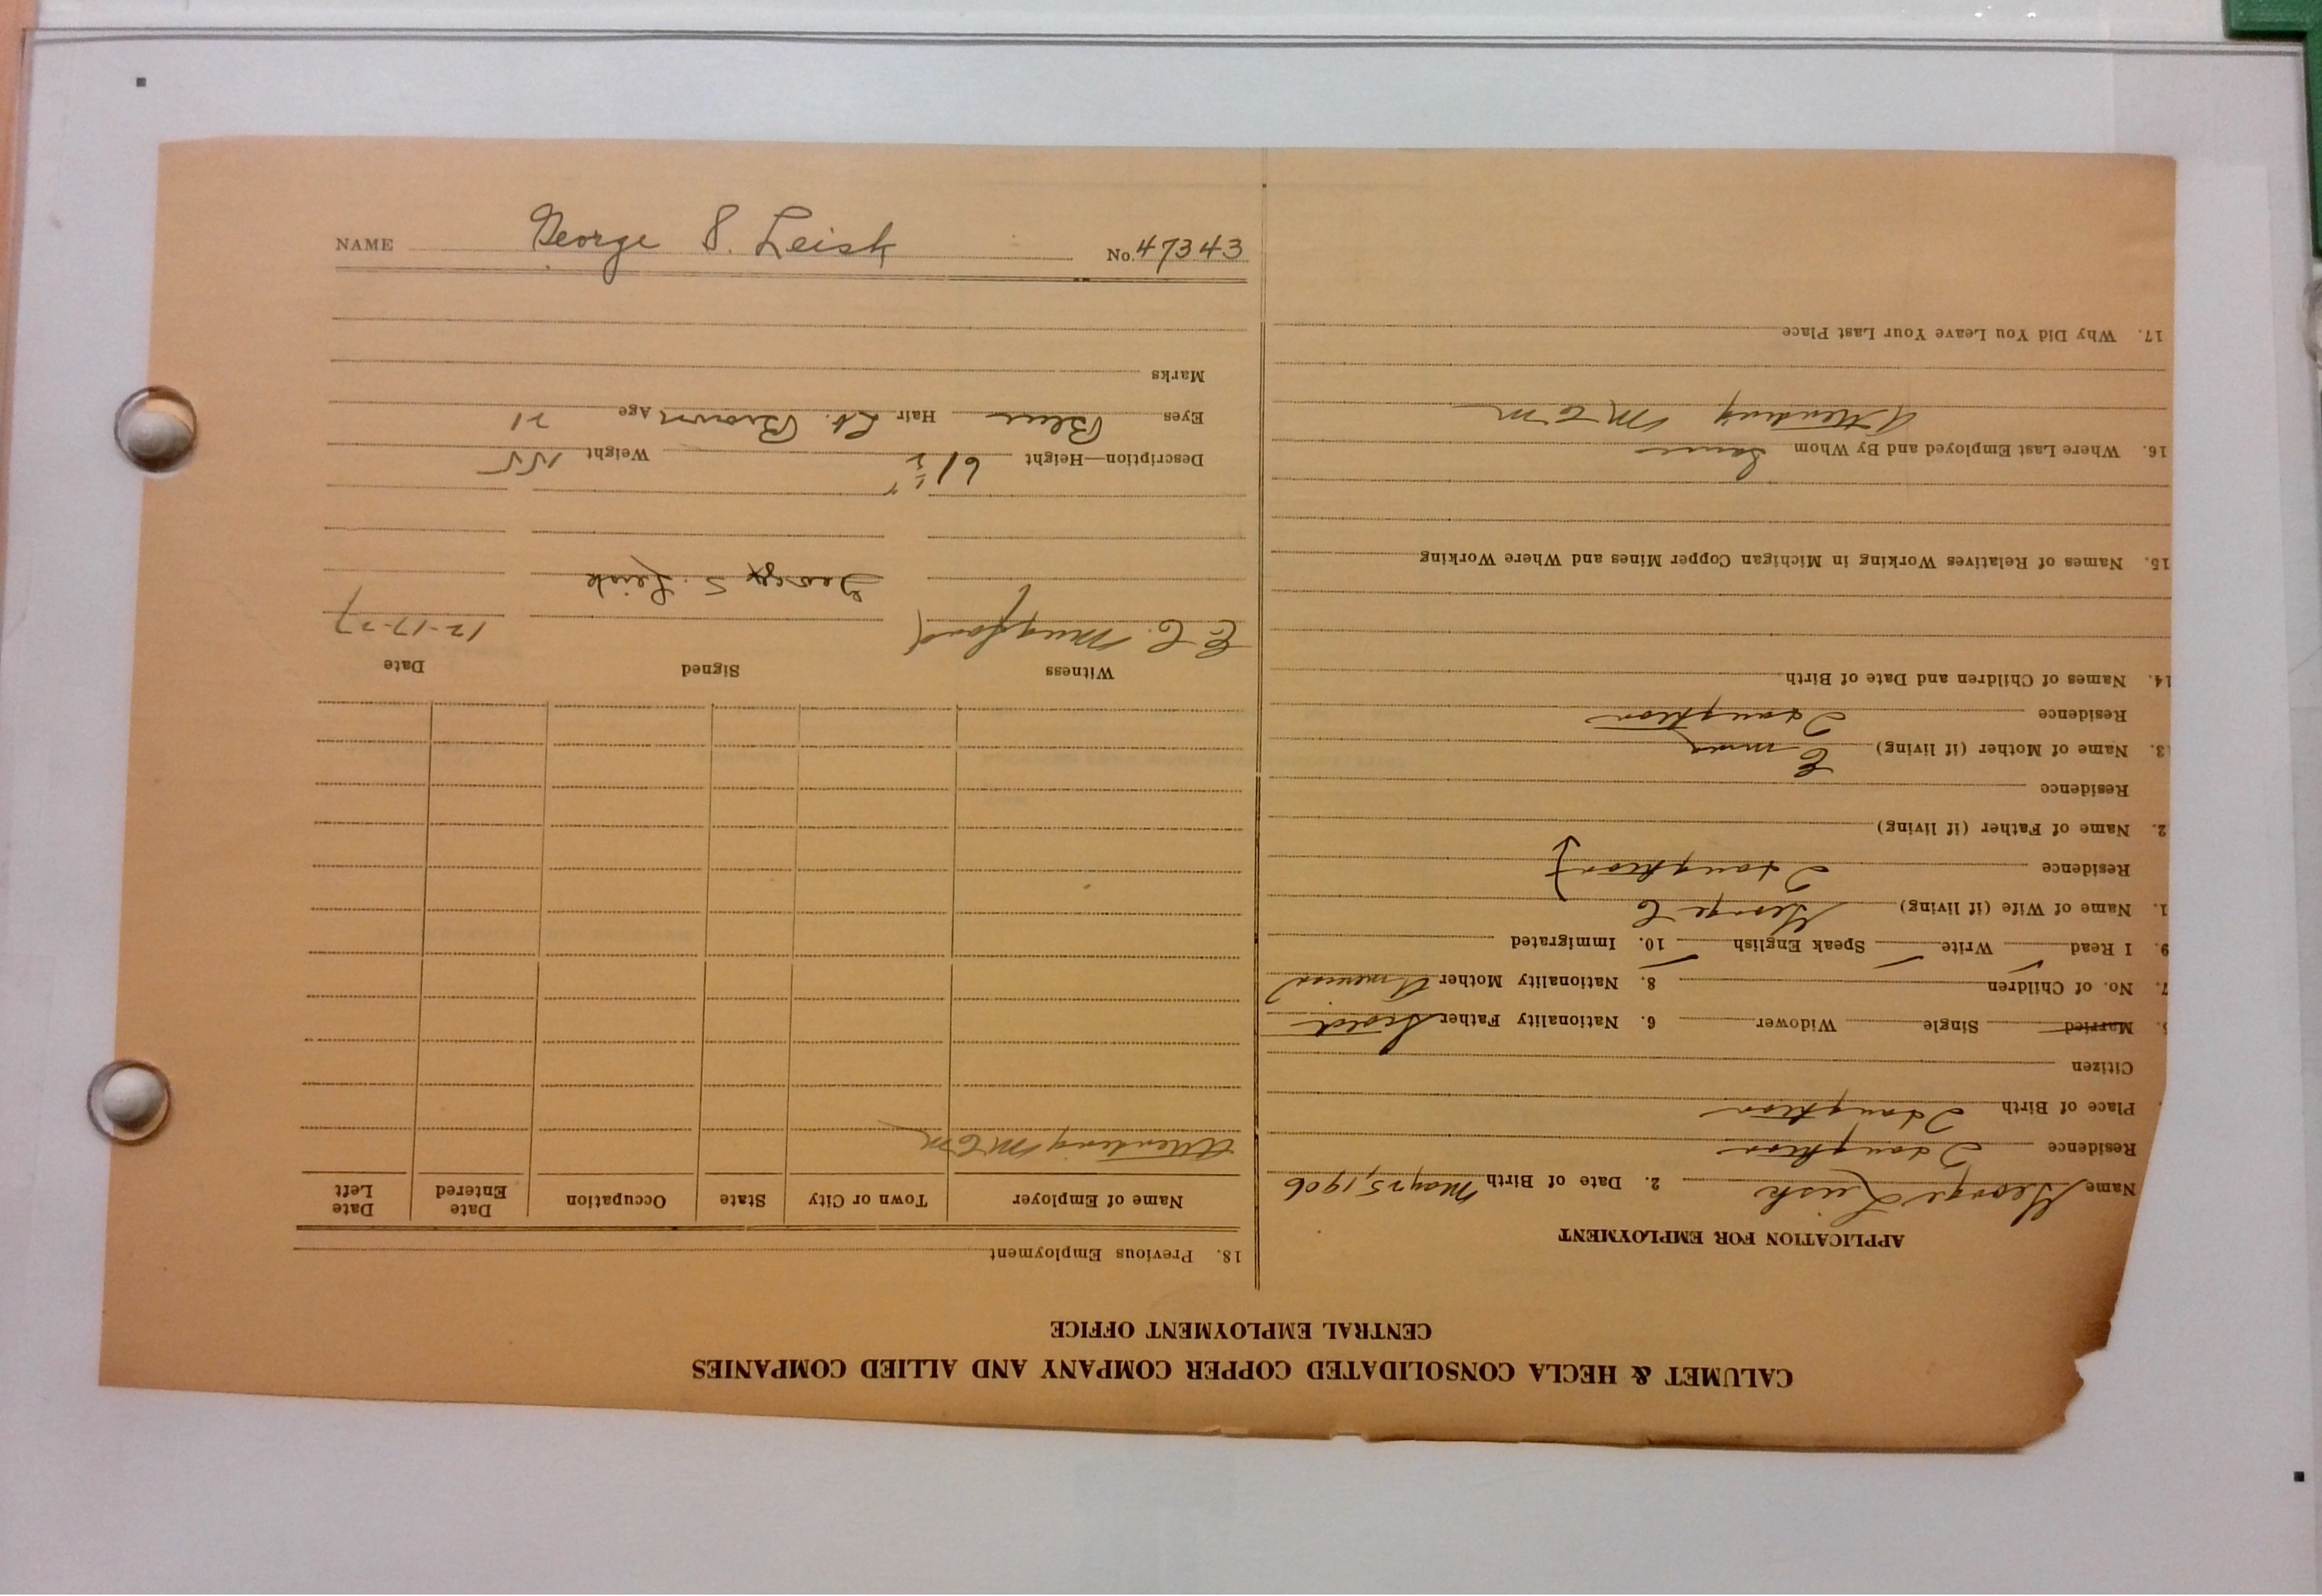 CALUMET & HECLA CONSOLIDATED COPPER COMPANY AND ALLIED COMPANIES
CENTRAL EMPLOYMENT OFFICE
APPLICATION FOR EMPLOYMENT
Name George Leisk 2. Date of Birth May 25, 1906
Residence Houghton
Place of Birth Houghton
Citizen
Married Single Widower 6. Nationality Father
7. No. of Children 8. Nationality Mother American
9. I Read Write Speak English 10. Immigrated
1. Name of Wife (if living) George C
Residence Houghton
2. Name of Father (if living)
Residence
3. Name of Mother (if living) Emma
Residence Houghton
14. Names of Children and Date of Birth
15. Names of Relatives Working in Michigan Copper Mines and Where Working
16. Where Last Employed and By Whom
Attending M C M
17. Why Did You Leave Your Last Place
18. Previous Employment
Name of Employer Town or City State Occupation Date Entered Date Left
Attending M C M
Witness Signed Date
E. C. Mugford 12-17-27
George S. Leisk
Description—Height 6' 1 1/2" Weight 155
Eyes Blue Hair Lt. Brown Age 21
Marks
NAME George S. Leisk No. 47343